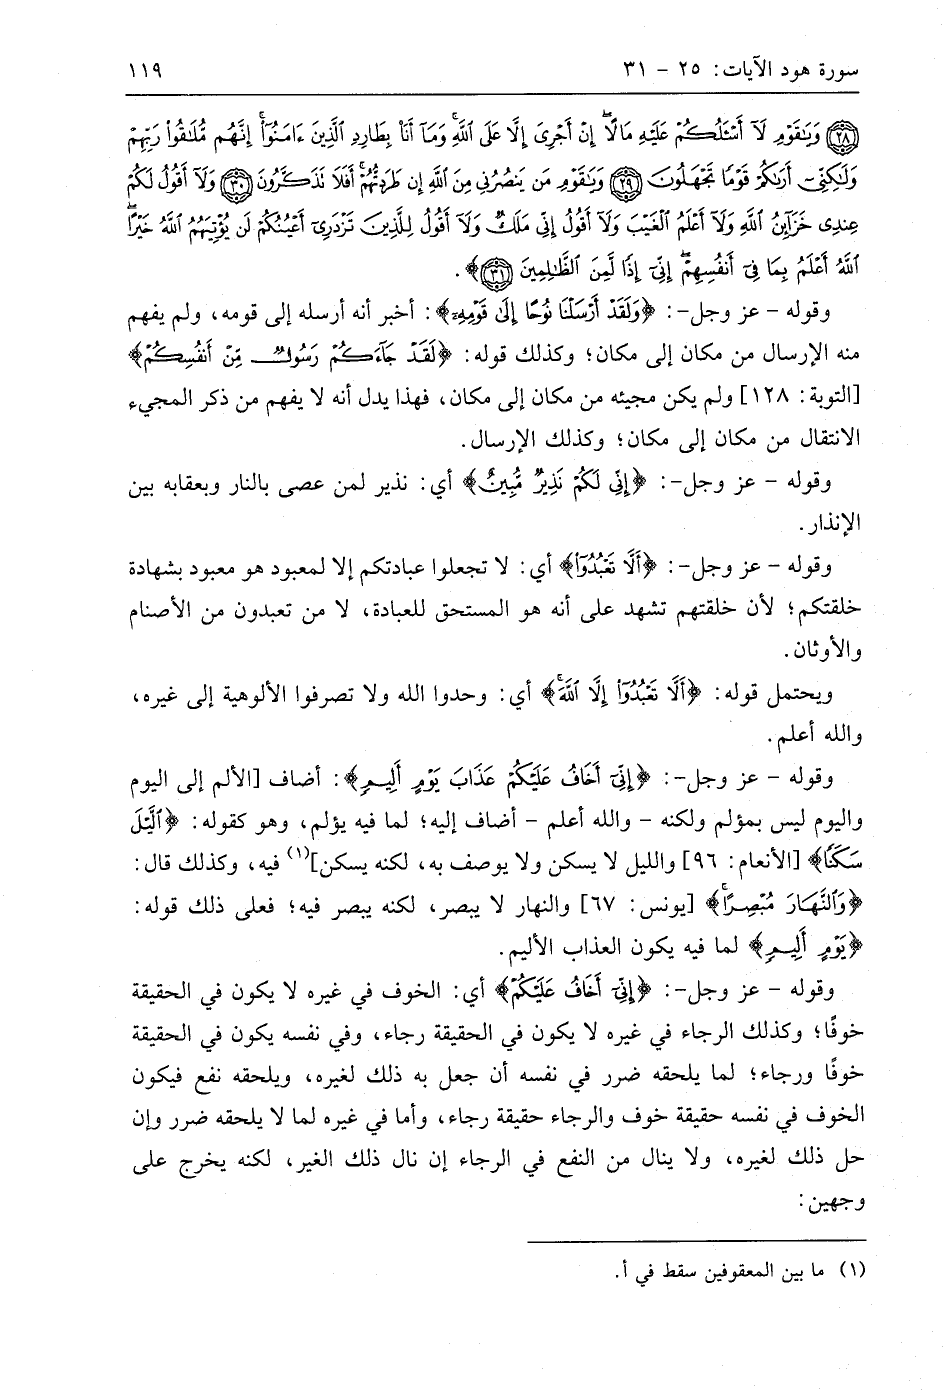 سورة هود الآيات: ٢٥ - ٣١ ١١٩
﴿٢٨﴾ وَيَٰقَوْمِ لَآ أَسْـَٔلُكُمْ عَلَيْهِ مَالًا ۖ إِنْ أَجْرِىَ إِلَّا عَلَى ٱللَّهِ ۚ وَمَآ أَنَا۠ بِطَارِدِ ٱلَّذِينَ ءَامَنُوٓا۟ ۚ إِنَّهُم مُّلَٰقُوا۟ رَبِّهِمْ
وَلَٰكِنِّىٓ أَرَىٰكُمْ قَوْمًا تَجْهَلُونَ ﴿٢٩﴾ وَيَٰقَوْمِ مَن يَنصُرُنِى مِنَ ٱللَّهِ إِن طَرَدتُّهُمْ ۚ أَفَلَا تَذَكَّرُونَ ﴿٣٠﴾ وَلَآ أَقُولُ لَكُمْ
عِندِى خَزَآئِنُ ٱللَّهِ وَلَآ أَعْلَمُ ٱلْغَيْبَ وَلَآ أَقُولُ إِنِّى مَلَكٌ وَلَآ أَقُولُ لِلَّذِينَ تَزْدَرِىٓ أَعْيُنُكُمْ لَن يُؤْتِيَهُمُ ٱللَّهُ خَيْرًا ۖ
ٱللَّهُ أَعْلَمُ بِمَا فِىٓ أَنفُسِهِمْ ۖ إِنِّىٓ إِذًا لَّمِنَ ٱلظَّٰلِمِينَ ﴿٣١﴾﴾.
وقوله - عز وجل-: ﴿وَلَقَدْ أَرْسَلْنَا نُوحًا إِلَىٰ قَوْمِهِۦ﴾: أخبر أنه أرسله إلى قومه، ولم يفهم
منه الإرسال من مكان إلى مكان؛ وكذلك قوله: ﴿لَقَدْ جَآءَكُمْ رَسُولٌ مِّنْ أَنفُسِكُمْ﴾
[التوبة: ١٢٨] ولم يكن مجيئه من مكان إلى مكان، فهذا يدل أنه لا يفهم من ذكر المجيء
الانتقال من مكان إلى مكان؛ وكذلك الإرسال.
وقوله - عز وجل-: ﴿إِنِّى لَكُمْ نَذِيرٌ مُّبِينٌ﴾ أي: نذير لمن عصى بالنار وبعقابه بين
الإنذار.
وقوله - عز وجل-: ﴿أَلَّا تَعْبُدُوٓا۟﴾ أي: لا تجعلوا عبادتكم إلا لمعبود هو معبود بشهادة
خلقتكم؛ لأن خلقتهم تشهد على أنه هو المستحق للعبادة، لا من تعبدون من الأصنام
والأوثان.
ويحتمل قوله: ﴿أَلَّا تَعْبُدُوٓا۟ إِلَّا ٱللَّهَ ۚ﴾ أي: وحدوا الله ولا تصرفوا الألوهية إلى غيره،
والله أعلم.
وقوله - عز وجل-: ﴿إِنِّىٓ أَخَافُ عَلَيْكُمْ عَذَابَ يَوْمٍ أَلِيمٍ﴾: أضاف [الألم إلى اليوم
واليوم ليس بمؤلم ولكنه - والله أعلم - أضاف إليه؛ لما فيه يؤلم، وهو كقوله: ﴿ٱلَّيْلَ
سَكَنًا﴾ [الأنعام: ٩٦] والليل لا يسكن ولا يوصف به، لكنه يسكن](١) فيه، وكذلك قال:
﴿وَٱلنَّهَارَ مُبْصِرًا ۚ﴾ [يونس: ٦٧] والنهار لا يبصر، لكنه يبصر فيه؛ فعلى ذلك قوله:
﴿يَوْمٍ أَلِيمٍ﴾ لما فيه يكون العذاب الأليم.
وقوله - عز وجل-: ﴿إِنِّىٓ أَخَافُ عَلَيْكُمْ﴾ أي: الخوف في غيره لا يكون في الحقيقة
خوفًا؛ وكذلك الرجاء في غيره لا يكون في الحقيقة رجاء، وفي نفسه يكون في الحقيقة
خوفًا ورجاء؛ لما يلحقه ضرر في نفسه أن جعل به ذلك لغيره، ويلحقه نفع فيكون
الخوف في نفسه حقيقة خوف والرجاء حقيقة رجاء، وأما في غيره لما لا يلحقه ضرر وإن
حل ذلك لغيره، ولا ينال من النفع في الرجاء إن نال ذلك الغير، لكنه يخرج على
وجهين:
(١) ما بين المعقوفين سقط في أ.